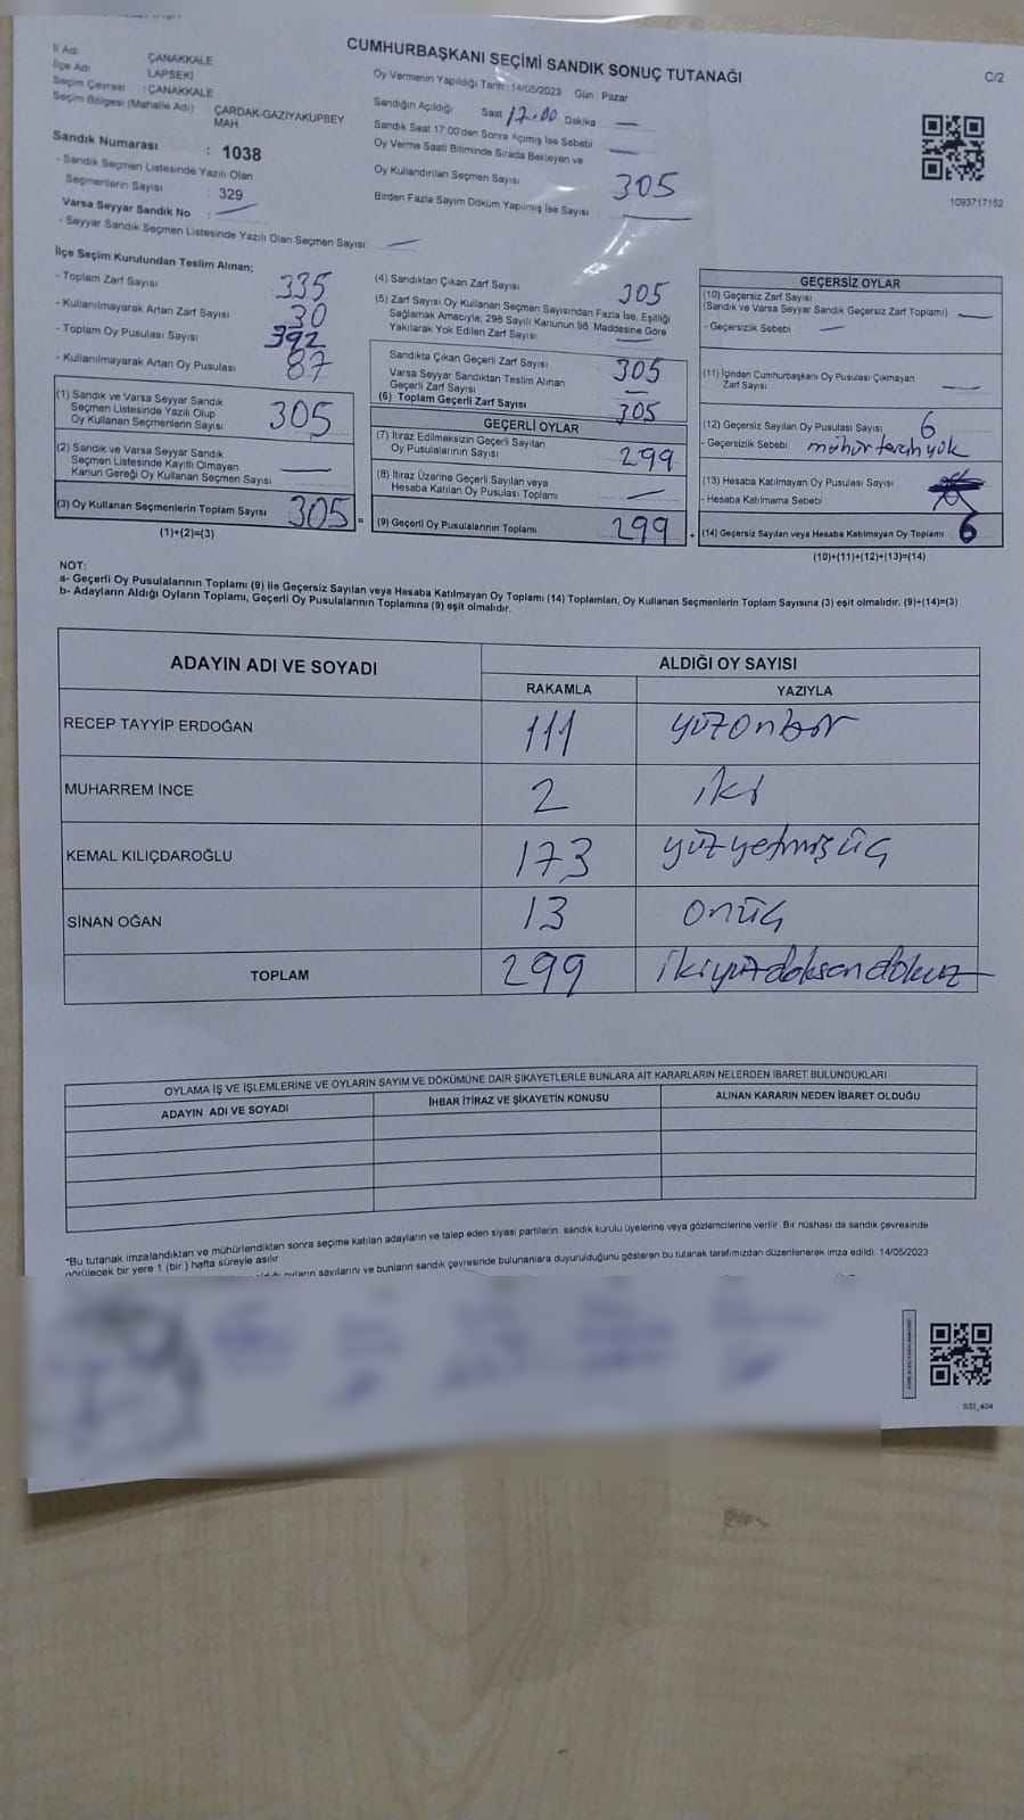 CUMHURBAŞKANI SEÇİMİ SANDIK SONUÇ TUTANAĞI
C/2
İl Adı ÇANAKKALE
İlçe Adı LAPSEKİ
Seçim Çevresi : ÇANAKKALE
Seçim Bölgesi (Mahalle Adı) ÇARDAK-GAZİYAKUPBEY MAH
Sandık Numarası : 1038
- Sandık Seçmen Listesinde Yazılı Olan
Seçmenlerin Sayısı : 329
Varsa Seyyar Sandık No : —
- Seyyar Sandık Seçmen Listesinde Yazılı Olan Seçmen Sayısı —
Oy Vermenin Yapıldığı Tarih : 14/05/2023 Gün : Pazar
Sandığın Açıldığı Saat 17.00 Dakika —
Sandık Saat 17:00'den Sonra Açılmış İse Sebebi —
Oy Verme Saati Bitiminde Sırada Bekleyen ve
Oy Kullandırılan Seçmen Sayısı 305
Birden Fazla Sayım Döküm Yapılmış İse Sayısı —
1093717152
İlçe Seçim Kurulundan Teslim Alınan;
- Toplam Zarf Sayısı 335
- Kullanılmayarak Artan Zarf Sayısı 30
- Toplam Oy Pusulası Sayısı 392
- Kullanılmayarak Artan Oy Pusulası 87
(1) Sandık ve Varsa Seyyar Sandık
Seçmen Listesinde Yazılı Olup
Oy Kullanan Seçmenlerin Sayısı 305
(2) Sandık ve Varsa Seyyar Sandık
Seçmen Listesinde Kayıtlı Olmayan
Kanun Gereği Oy Kullanan Seçmen Sayısı —
(3) Oy Kullanan Seçmenlerin Toplam Sayısı 305 =
(1)+(2)=(3)
(4) Sandıktan Çıkan Zarf Sayısı 305
(5) Zarf Sayısı Oy Kullanan Seçmen Sayısından Fazla İse, Eşitliği
Sağlamak Amacıyla, 298 Sayılı Kanunun 98. Maddesine Göre
Yakılarak Yok Edilen Zarf Sayısı —
Sandıkta Çıkan Geçerli Zarf Sayısı 305
Varsa Seyyar Sandıktan Teslim Alınan
Geçerli Zarf Sayısı —
(6) Toplam Geçerli Zarf Sayısı 305
GEÇERLİ OYLAR
(7) İtiraz Edilmeksizin Geçerli Sayılan
Oy Pusulalarının Sayısı 299
(8) İtiraz Üzerine Geçerli Sayılan veya
Hesaba Katılan Oy Pusulası Toplamı —
(9) Geçerli Oy Pusulalarının Toplamı 299 +
GEÇERSİZ OYLAR
(10) Geçersiz Zarf Sayısı
(Sandık ve Varsa Seyyar Sandık Geçersiz Zarf Toplamı) —
- Geçersizlik Sebebi —
(11) İçinden Cumhurbaşkanı Oy Pusulası Çıkmayan
Zarf Sayısı —
(12) Geçersiz Sayılan Oy Pusulası Sayısı 6
- Geçersizlik Sebebi mühür tercih yok
(13) Hesaba Katılmayan Oy Pusulası Sayısı
- Hesaba Katılmama Sebebi
(14) Geçersiz Sayılan veya Hesaba Katılmayan Oy Toplamı 6
(10)+(11)+(12)+(13)=(14)
NOT:
a- Geçerli Oy Pusulalarının Toplamı (9) ile Geçersiz Sayılan veya Hesaba Katılmayan Oy Toplamı (14) Toplamları, Oy Kullanan Seçmenlerin Toplam Sayısına (3) eşit olmalıdır. (9)+(14)=(3)
b- Adayların Aldığı Oyların Toplamı, Geçerli Oy Pusulalarının Toplamına (9) eşit olmalıdır.
ADAYIN ADI VE SOYADI ALDIĞI OY SAYISI
RAKAMLA YAZIYLA
RECEP TAYYİP ERDOĞAN 111 yüzonbir
MUHARREM İNCE 2 iki
KEMAL KILIÇDAROĞLU 173 yüzyetmişüç
SİNAN OĞAN 13 onüç
TOPLAM 299 ikiyüzdoksandokuz
OYLAMA İŞ VE İŞLEMLERİNE VE OYLARIN SAYIM VE DÖKÜMÜNE DAİR ŞİKAYETLERLE BUNLARA AİT KARARLARIN NELERDEN İBARET BULUNDUKLARI
ADAYIN ADI VE SOYADI İHBAR İTİRAZ VE ŞİKAYETİN KONUSU ALINAN KARARIN NEDEN İBARET OLDUĞU
*Bu tutanak imzalandıktan ve mühürlendikten sonra seçime katılan adayların ve talep eden siyasi partilerin, sandık kurulu üyelerine veya gözlemcilerine verilir. Bir nüshası da sandık çevresinde
görülecek bir yere 1 (bir) hafta süreyle asılır.
oyların sayılarını ve bunların sandık çevresinde bulunanlara duyurulduğunu gösteren bu tutanak tarafımızdan düzenlenerek imza edildi. 14/05/2023